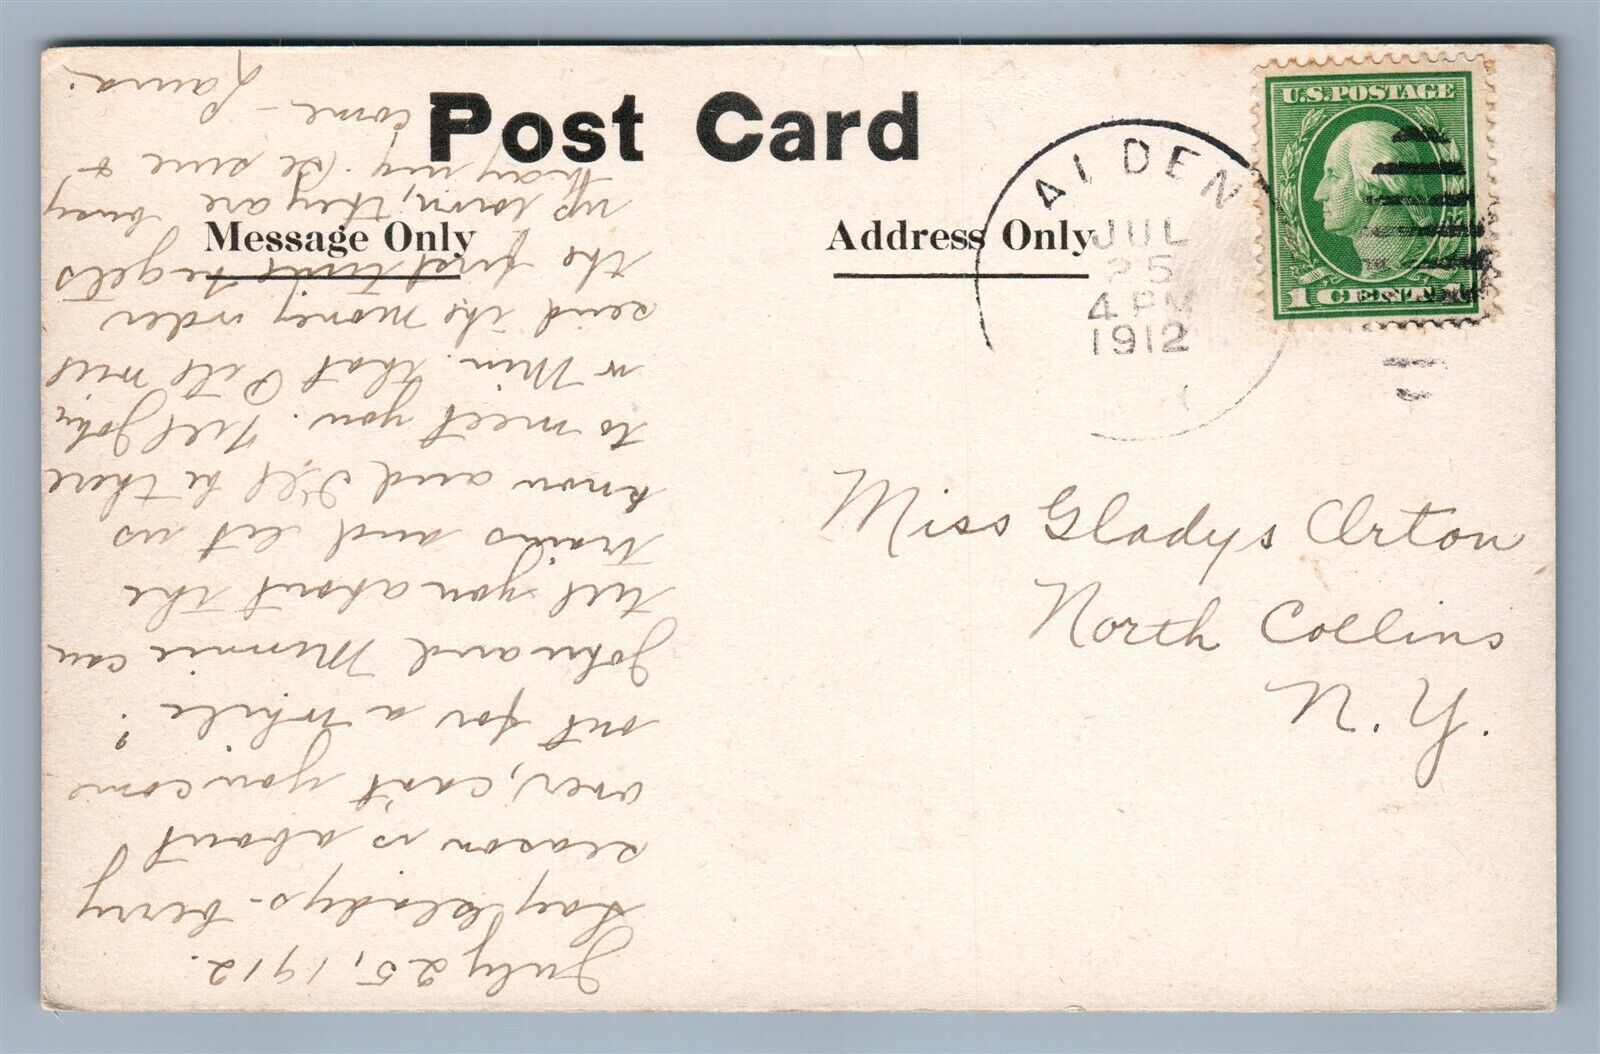 Post Card
Message Only
Address Only
ALDEN
JUL
25
4 PM
1912
U.S.POSTAGE
1 CENT 1
Miss Gladys Orton
North Collins
N. Y.
July 25, 1912.
Say Gladys - berry
season is about
over, can't you come
out for a while?
John and Minnie can
tell you about the
trains and let us
know and I'll be there
to meet you. Tell John
or Min. that I will
send the money order
the first time he gets
up town, they are busy
haying. Be sure &
come - Laura.